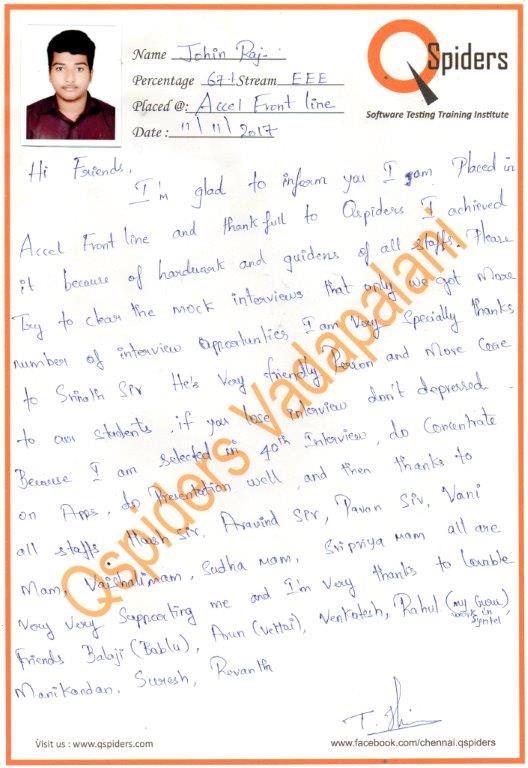 Name Johin Raj.
Percentage 67% Stream EEE
Placed @: Accel Front line
Date : 11/11/2017
QSpiders
Software Testing Training Institute
Hi Friends,
I'm glad to inform you I am Placed in
Accel Front line and thankfull to Qspiders I achieved
it because of hardwark and guidens of all staffs. Please
Try to clear the mock interviews that only we got more
number of interview opportunities I am Very Specially thanks
to Srinath Sir He's Very friendly Person and More Care
to our students, if you lose interview don't depressed
Because I am selected in 40th Interview, do Concentrate
on Apps, do Presentation well, and then thanks to
all staffs. Harsh Sir, Aravind Sir, Pavan Sir, Vani
Mam, Vaishali mam, Sudha mam, Sripriya mam all are
Very Very Supporting me and I'm Very thanks to lovable
Friends Balaji (Bablu), Arun (Vettai), Venkatesh, Rahul (my Guru) work in Syntel
Manikandan, Suresh, Revanth
Qspiders Vadapalani
Visit us : www.qspiders.com
www.facebook.com/chennai.qspiders